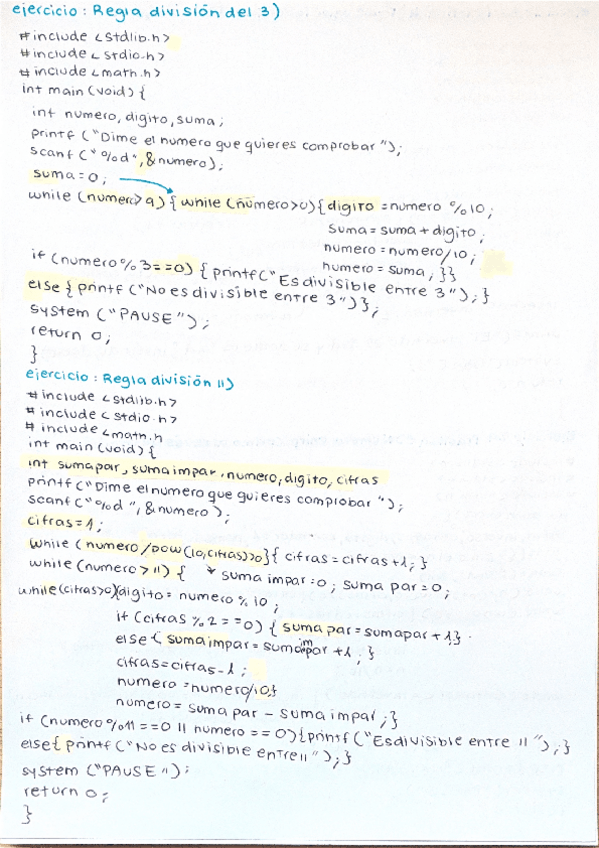 ejercicio: Regla división del 3)
#include <stdlib.h>
#include <stdio.h>
#include <math.h>
int main (void) {
int numero, digito, suma;
printf ("Dime el numero que quieres comprobar ");
scanf ("%d", &numero);
suma=0;
while (numero>9) { while (numero>0) { digito = numero %10;
suma = suma + digito;
numero = numero/10;
numero = suma; }}
if (numero % 3==0) { printf("Es divisible entre 3"); }
else { printf ("No es divisible entre 3")};
system ("PAUSE");
return 0;
}
ejercicio: Regla división 11)
#include <stdlib.h>
#include <stdio.h>
#include <math.h
int main (void) {
int sumapar, sumaimpar, numero, digito, cifras
printf ("Dime el numero que quieres comprobar ");
scanf ("%d ", &numero);
cifras=1;
while (numero/pow(10,cifras)>0) { cifras=cifras+1; }
while (numero>11) { * suma impar=0; suma par=0;
while(cifras>0){digito= numero % 10;
if (cifras % 2==0) { suma par=sumapar +1}
else { suma impar= sumaimpar +1; }
cifras=cifras-1;
numero =numero/10;}
numero = suma par - suma impar; }
if (numero %11==0 || numero == 0){printf ("Es divisible entre 11 "); }
else{ printf ("No es divisible entre 11 "); }
system ("PAUSE ");
return 0;
}